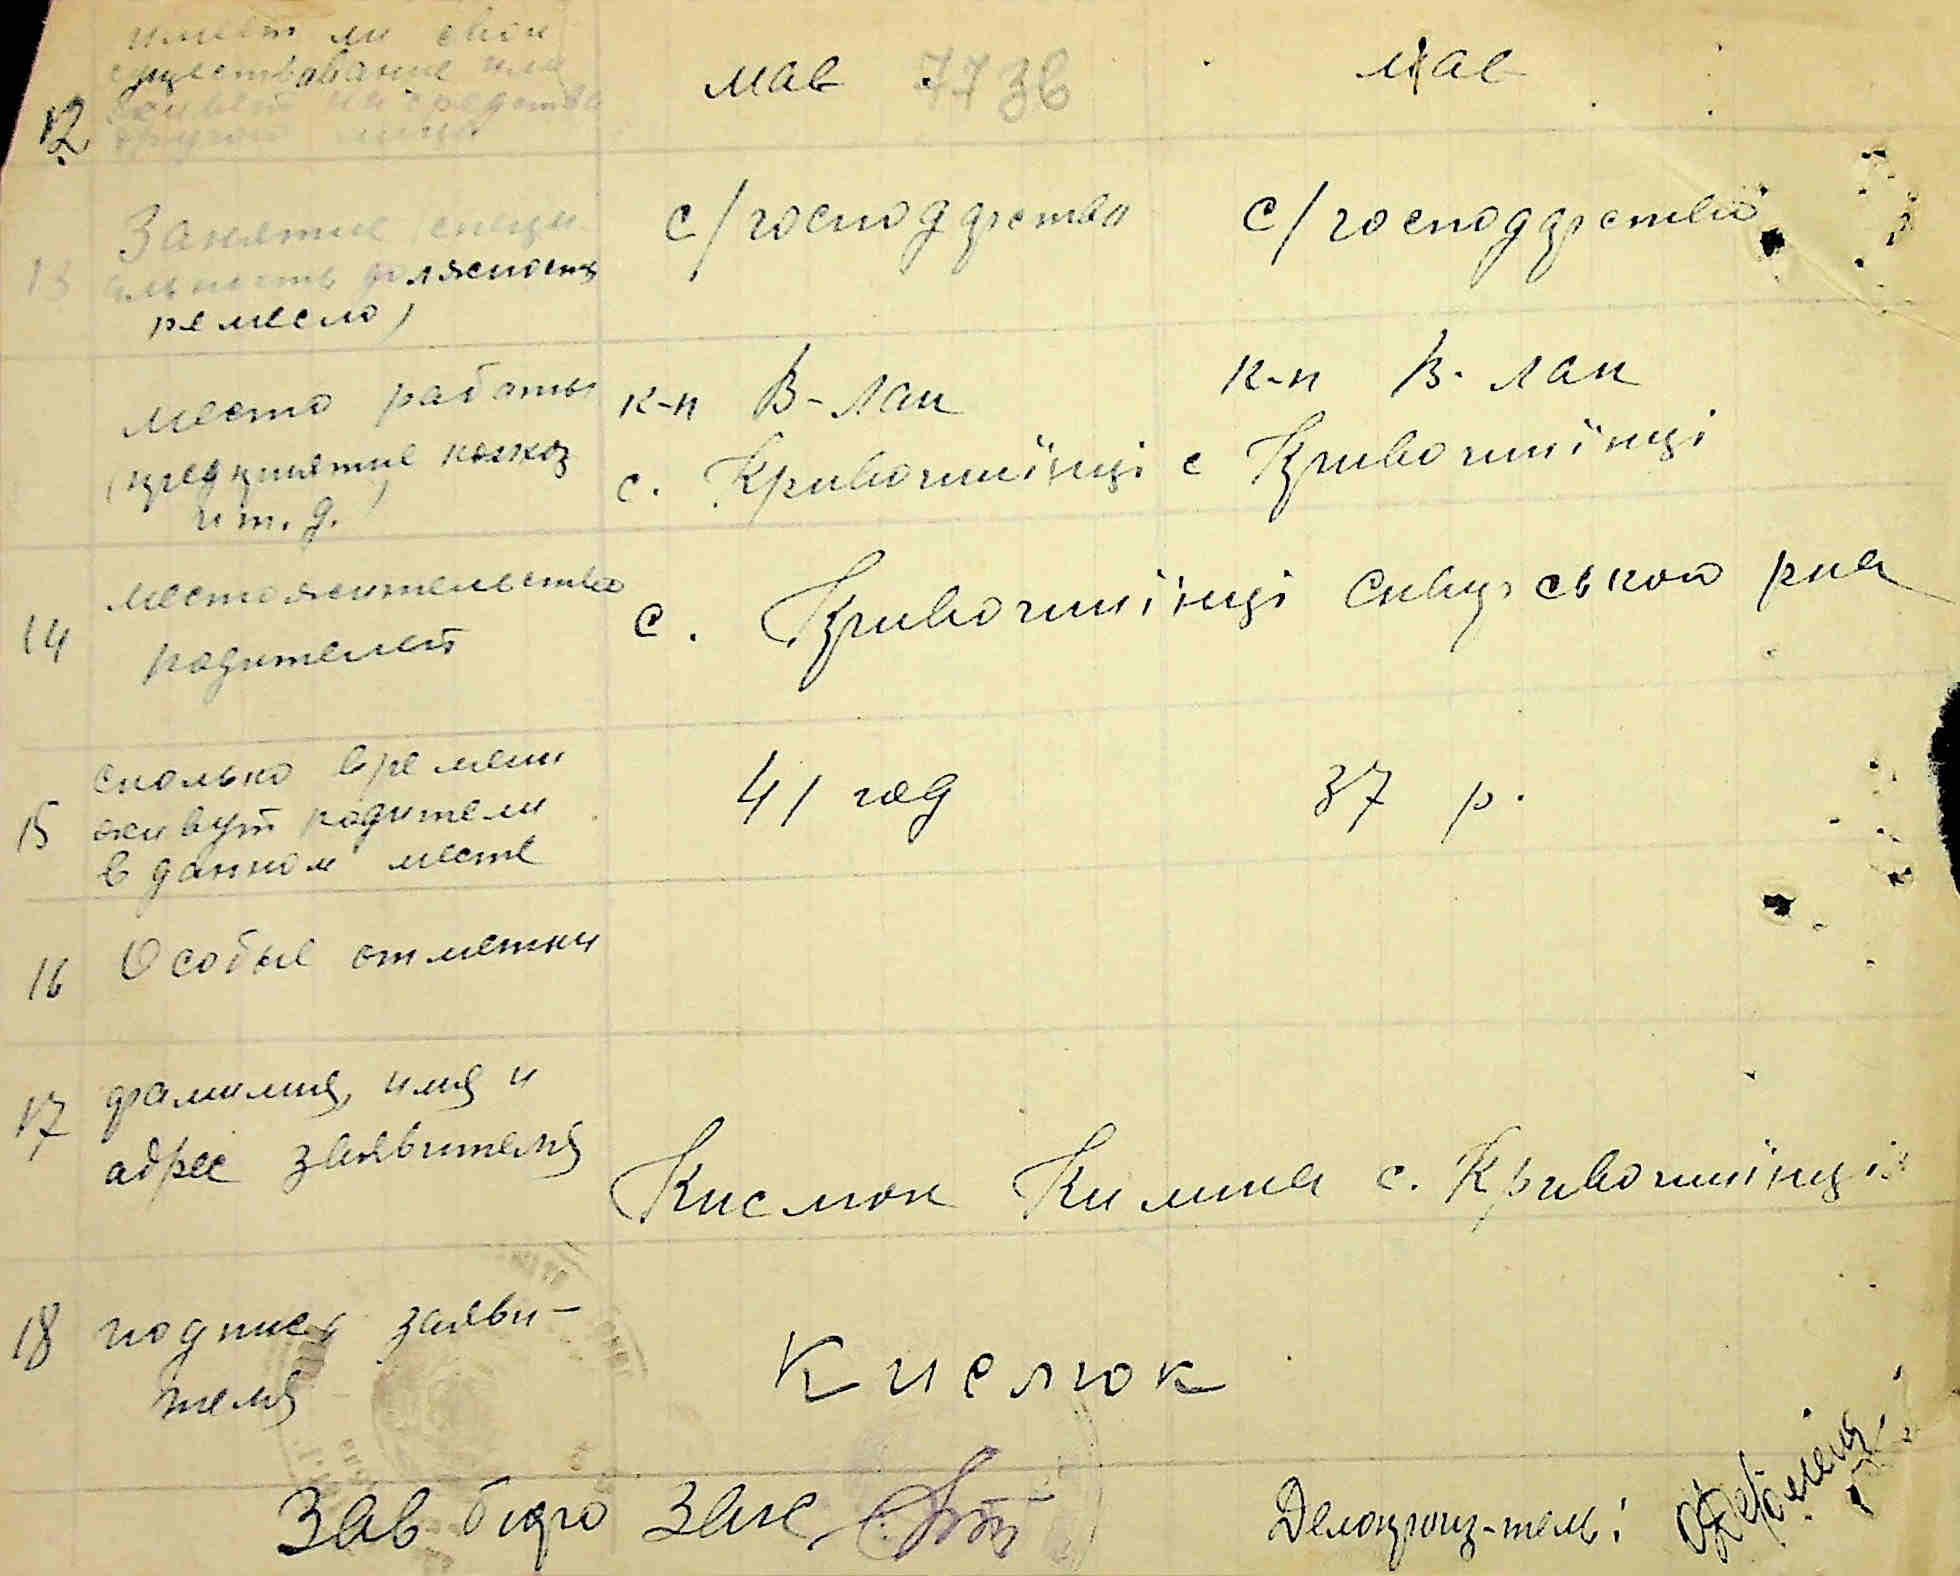 имеет ли свои
существование или
живет на средства
12 другого лица
мав 7738 мав
Занятие (специ
13 альность должность
ремесло)
с/господарства с/господарства
место работы
(предприятие колхоз
и т. д.)
к-п В-лан к-п В-лан
с. Кривошиїнці с Кривошиїнці
14 местожительство
родителей
с. Кривошиїнці Сквирського р-на
сколько времени
15 живут родители
в данном месте
41 год 37 р.
16 Особые отметки
17 фамилия, имя и
адрес заявителя
Кислюк Килина с. Кривошиїнці
18 подпись заяви-
теля
Кислюк
Зав бюро Загс Делопроиз-тель: